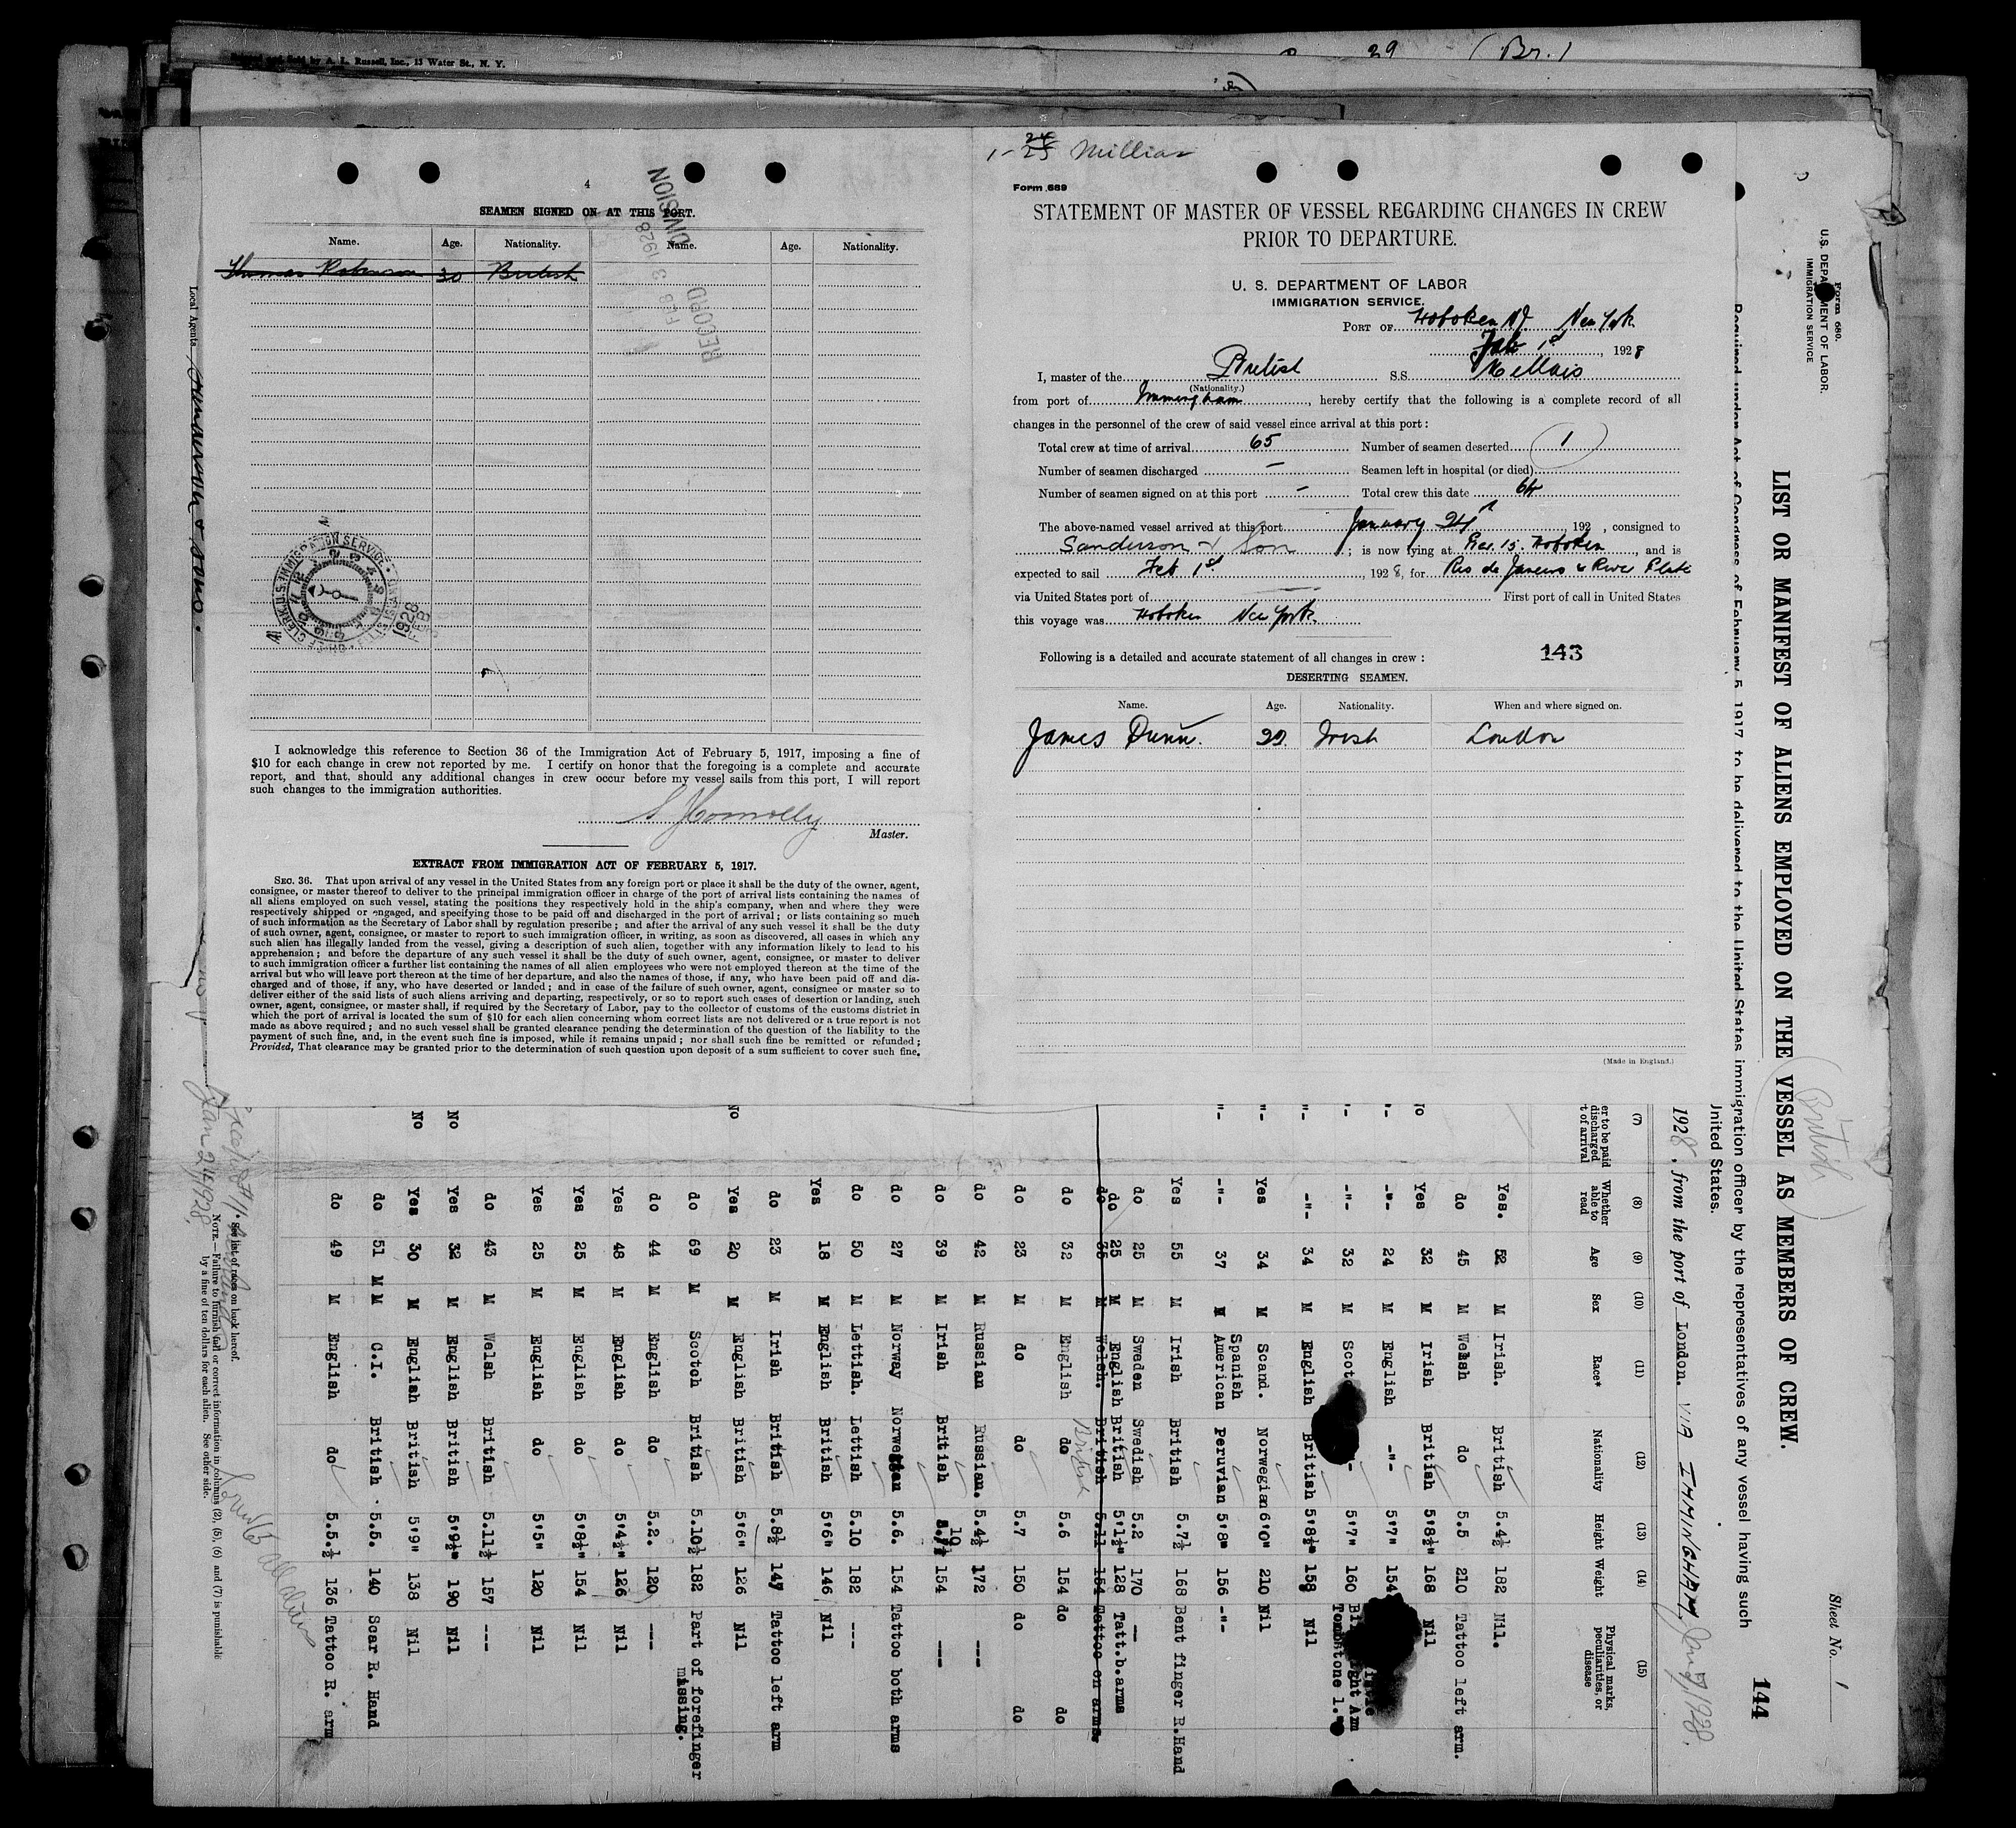 Printed and Sold by A. L. Russell, Inc., 13 Water St., N. Y.
29 (Br.)
4
SEAMEN SIGNED ON AT THIS PORT.
Name. Age. Nationality. Name. Age. Nationality.
Thomas Robinson 30 British
RECORD
FEB 3 1928
DIVISION
Local Agents
I acknowledge this reference to Section 36 of the Immigration Act of February 5, 1917, imposing a fine of
$10 for each change in crew not reported by me. I certify on honor that the foregoing is a complete and accurate
report, and that, should any additional changes in crew occur before my vessel sails from this port, I will report
such changes to the immigration authorities.
Master.
EXTRACT FROM IMMIGRATION ACT OF FEBRUARY 5, 1917.
SEC. 36. That upon arrival of any vessel in the United States from any foreign port or place it shall be the duty of the owner, agent,
consignee, or master thereof to deliver to the principal immigration officer in charge of the port of arrival lists containing the names of
all aliens employed on such vessel, stating the positions they respectively hold in the ship's company, when and where they were
respectively shipped or engaged, and specifying those to be paid off and discharged in the port of arrival; or lists containing so much
of such information as the Secretary of Labor shall by regulation prescribe; and after the arrival of any such vessel it shall be the duty
of such owner, agent, consignee, or master to report to such immigration officer, in writing, as soon as discovered, all cases in which any
such alien has illegally landed from the vessel, giving a description of such alien, together with any information likely to lead to his
apprehension; and before the departure of any such vessel it shall be the duty of such owner, agent, consignee, or master to deliver
to such immigration officer a further list containing the names of all alien employees who were not employed thereon at the time of the
arrival but who will leave port thereon at the time of her departure, and also the names of those, if any, who have been paid off and dis-
charged and of those, if any, who have deserted or landed; and in case of the failure of such owner, agent, consignee or master so to
deliver either of the said lists of such aliens arriving and departing, respectively, or so to report such cases of desertion or landing, such
owner, agent, consignee, or master shall, if required by the Secretary of Labor, pay to the collector of customs of the customs district in
which the port of arrival is located the sum of $10 for each alien concerning whom correct lists are not delivered or a true report is not
made as above required; and no such vessel shall be granted clearance pending the determination of the question of the liability to the
payment of such fine, and, in the event such fine is imposed, while it remains unpaid; nor shall such fine be remitted or refunded;
Provided, That clearance may be granted prior to the determination of such question upon deposit of a sum sufficient to cover such fine.
Form 689
STATEMENT OF MASTER OF VESSEL REGARDING CHANGES IN CREW
PRIOR TO DEPARTURE.
U. S. DEPARTMENT OF LABOR
IMMIGRATION SERVICE.
PORT OF Hoboken NJ. New York
Feb 1st, 1928
I, master of the British S.S. Millais
(Nationality.)
from port of Immingham, hereby certify that the following is a complete record of all
changes in the personnel of the crew of said vessel since arrival at this port:
Total crew at time of arrival 65 Number of seamen deserted 1
Number of seamen discharged – Seamen left in hospital (or died)
Number of seamen signed on at this port – Total crew this date 64
The above-named vessel arrived at this port January 24, 192 , consigned to
Sanderson & Son; is now lying at Pier 15. Hoboken, and is
expected to sail Feb 1st, 1928, for Rio de Janeiro & River Plate
via United States port of — First port of call in United States
this voyage was Hoboken New York
Following is a detailed and accurate statement of all changes in crew: 143
DESERTING SEAMEN.
Name. Age. Nationality. When and where signed on.
James Dunn. Irish London
(Made in England.)
Form 680.
U.S. DEPARTMENT OF LABOR.
IMMIGRATION SERVICE
Sheet No. 1
144
LIST OR MANIFEST OF ALIENS EMPLOYED ON THE VESSEL AS MEMBERS OF CREW.
(British)
Required under Act of Congress of February 5, 1917, to be delivered to the United States immigration officer by the representatives of any vessel having such
United States.
1928, from the port of London. VIA IMMINGHAM, Jan 7/1928.
(7) (8) (9) (10) (11) (12) (13) (14) (15)
er to be paid discharged t of arrival Whether able to read Age Sex Race* Nationality Height Weight Physical marks, peculiarities, or disease
Yes. 52 M Irish. British 5.4½ 182 Nil.
do 45 M Welsh do 5.5 210 Tattoo left arm.
No Yes 32 M Irish British 5'8½" 168 Nil
-"- -"- 24 M English -"- 5'7" 154
-"- -"- 32 M Scotc 5'7" 160 Tombstone l."
-"- -"- 34 M English British 5'8½" 158 Nil
-"- Yes 34 M Scand. Norwegian 6'0" 210 Nil
-"- -"- 37 M Spanish American Peruvian 5'8" 156 -"-
Yes 55 M Irish British 5.7½ 168 Bent finger R.Hand
do 25 M Sweden Swedish 5.2 170 --
do 25 M English British 5'1½" 128 Tatt.b.arms
do 35 M Welsh. British 5.11 154 Tattoo on arms.
do 32 M English do British 5.6 154 do do
do 23 M do do 5.7 150 do do
do 42 M Russian Russian. 5.4½ 172 ---
do 39 M Irish British 10 154 ---
do 27 M Norway Norwegian 5.6. 154 Tattoo both arms
do 50 M Lettish. Lettish 5.10 182 ---
Yes 18 M English British 5'6" 146 Nil
do 23 M Irish British 5.8½ 147 Tattoo left arm
No Yes 20 M English British 5'6" 126 Nil
do 69 M Scotch British 5.10½ 182 Part of forefinger missing.
do 44 M English do 5.2. 120 ---
Yes 48 M English do 5'4½" 126 Nil
Yes 25 M English do 5'8½" 154 Nil
Yes 25 M English do 5'5" 120 Nil
do 43 M Welsh British 5.11½ 157 ---
No Yes 32 M English British 5'9½" 190 Nil
No Yes 30 M English British 5'9" 138 Nil
do 51 M M C.I. British 5.5. 140 Scar R. Hand
do 49 M English do 5.5.½ 136 Tattoo R. arm
See list of races on back hereof.
NOTE.—Failure to furnish full or correct information in columns (2), (5), (6) and (7) is punishable
by a fine of ten dollars for each alien. See other side.
Jan 24, 1928